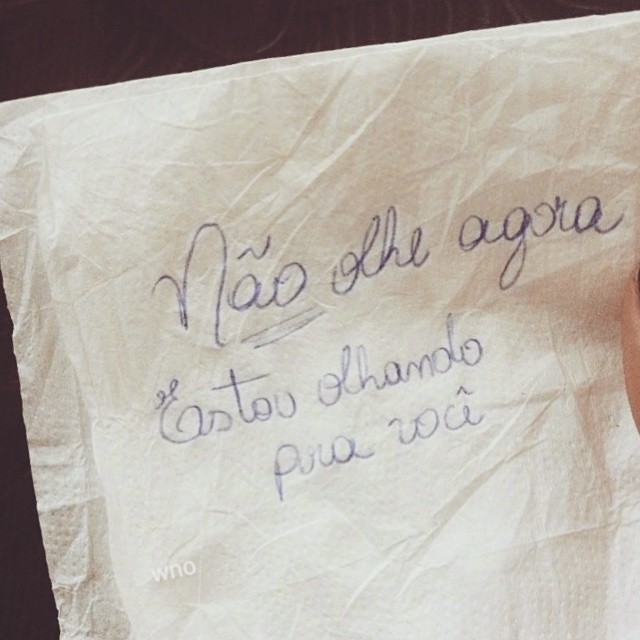 Não olhe agora
Estou olhando
pra você
wno